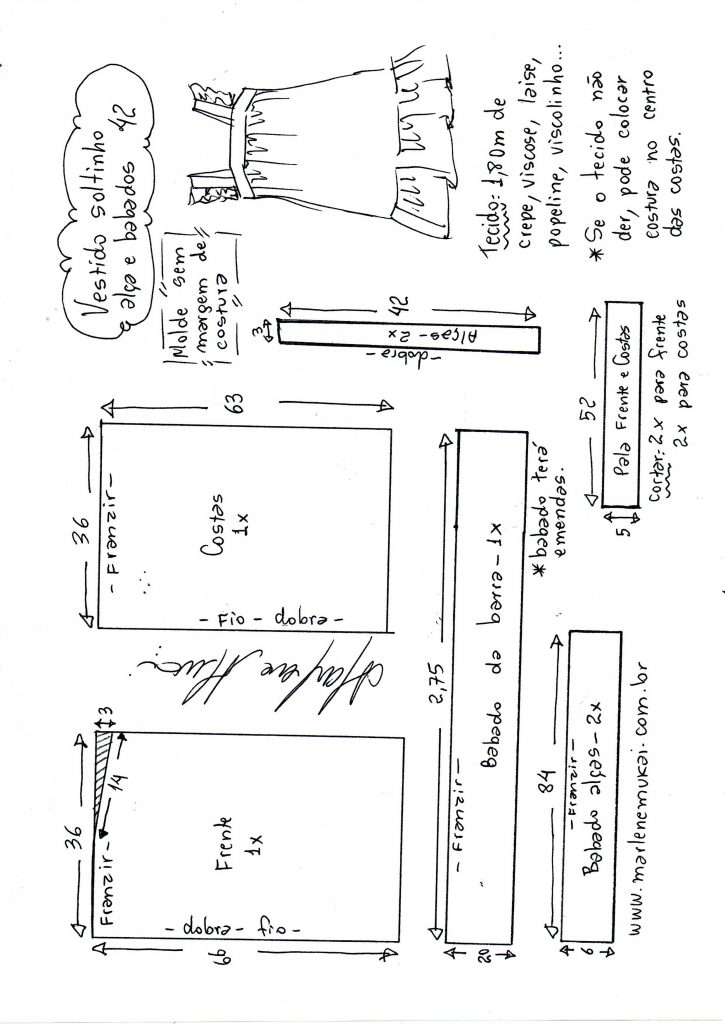 Vestido soltinho
e alça e babados 42
36
Franzir-
3
14
Frente
1x
-fio - dobra-
66
Marlene Mukai
36
-Franzir-
Costas
1x
-Fio - dobra-
63
"Molde sem
margem de
costura"
3
-dobra-
Alças-2x
42
2,75
-Franzir-
Babado da barra-1x
20
*babado terá
emendas.
Tecido: 1,80m de
crepe, viscose, laise,
popeline, viscolinho...
*Se o tecido não
der, pode colocar
costura no centro
das costas.
84
-Franzir-
Babado alças-2x
6
52
5
Pala Frente e Costas
Cortar: 2x para frente
2x para costas
www.marlenemukai.com.br